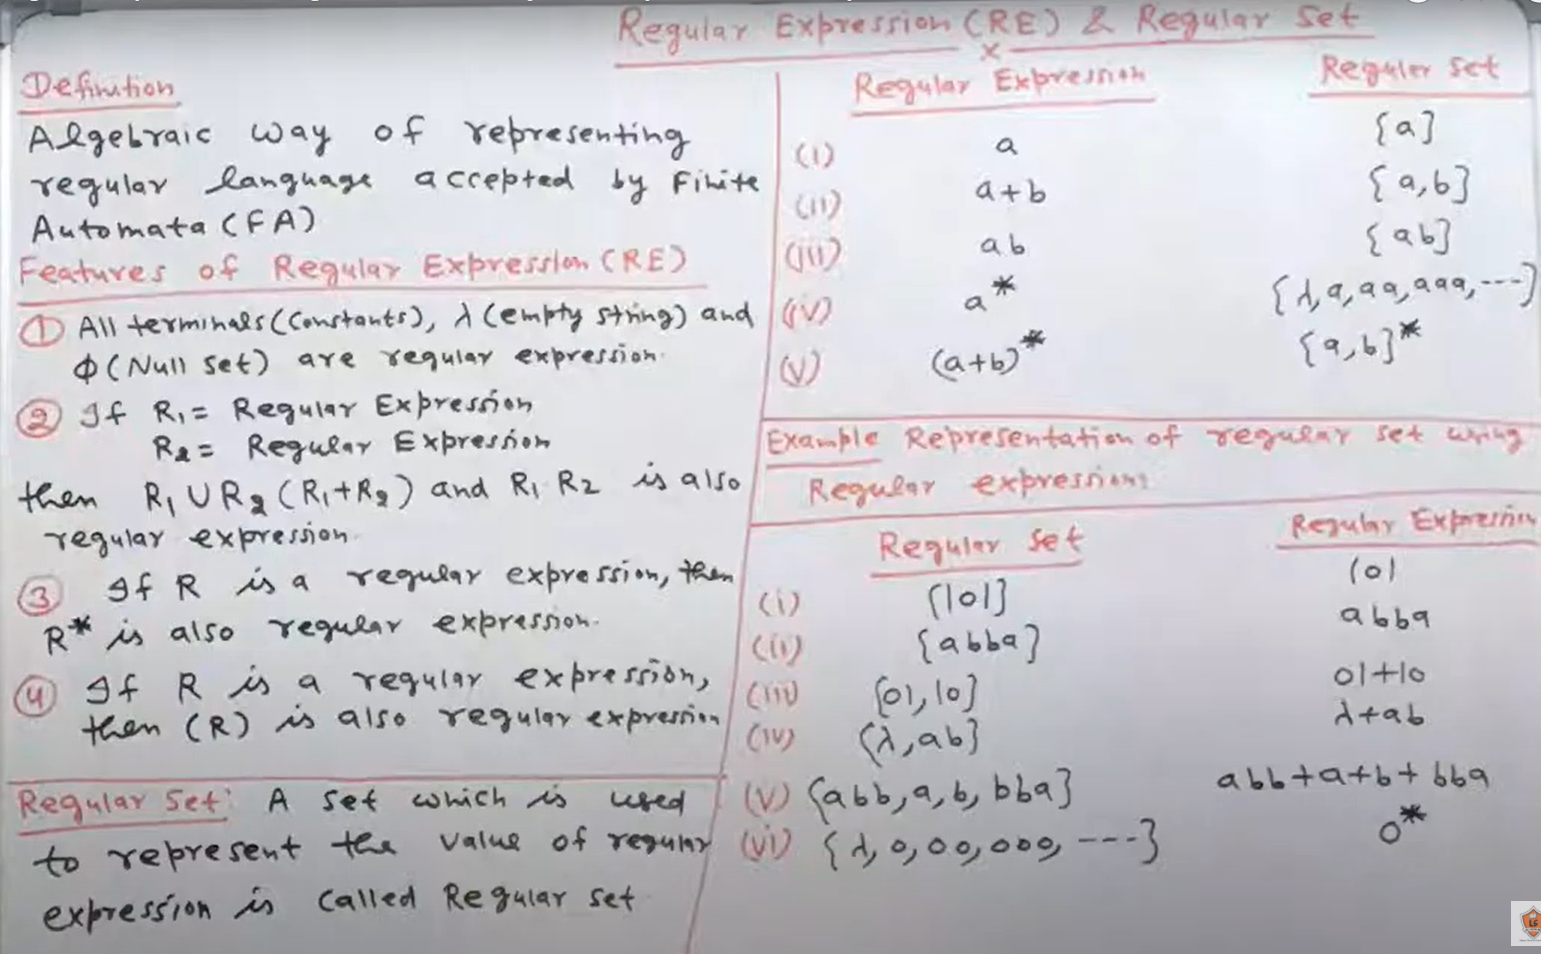 Regular Expression (RE) & Regular Set
x
Definition
Algebraic way of representing
regular language accepted by Finite
Automata (FA)
Features of Regular Expression (RE)
① All terminals (Constants), λ (empty string) and
ϕ (Null set) are regular expression.
② If R₁ = Regular Expression
R₂ = Regular Expression
then R₁ U R₂ (R₁+R₂) and R₁ R₂ is also
regular expression.
③ If R is a regular expression, then
R* is also regular expression.
④ If R is a regular expression,
then (R) is also regular expression
Regular Set: A set which is used
to represent the value of regular
expression is called Regular set
Regular Expression Regular Set
(i) a {a}
(ii) a+b {a,b}
(iii) ab {ab}
(iv) a* {λ, a, aa, aaa, ----}
(v) (a+b)* {a,b}*
Example Representation of regular set using
Regular expressions
Regular Set Regular Expression
(i) {101} 101
(ii) {abba} abba
(iii) {01,10} 01+10
(iv) {λ,ab} λ+ab
(v) {abb, a, b, bba} abb+a+b+bba
(vi) {λ, 0, 00, 000, ----} 0*
LS